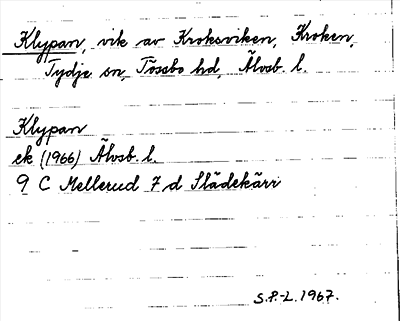 Klypan, vik av Kroksviken, Kroken,
Tydje sn, Tössbo hd, Älvsb. l.
Klypan
ek (1966) Älvsb. l.
9 C Mellerud 7 d Slädekärr
S.P.-L. 1967.